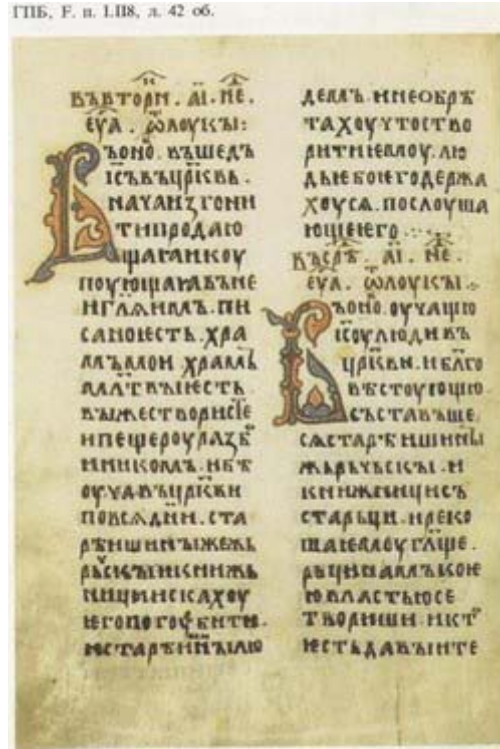 ГПБ, F. п. I.118, л. 42 об.
ВЪВТОРН. АІ. НЕ.
ЕУА. ѾЛОУКЫ:
ВЪОНО. ВЪШЕДЪ
ІСЪВЪЦРКВЬ.
НАЧАНЗГОНИ
ТИПРОДАЮ
ЩАГАНКОУ
ПОУЮЩАꙖВЪНЕ
НГЛꙖНМЪ. ПИ
САНОѤСТЬ. ХРА
МЪМОН ХРАМЪ
МЛТВЫѤСТЬ
ВЫЖЕСТВОРИСТЕ
ИПЕЩЕРОУРАЗБ
ННИКОМЪ. НБѢ
ОУЧАВЪЦРКВИ
ПОВСꙖДНИ. СТА
РѢНШИНЫЖЕЖЬ
РЬСКЫНКНИЖЬ
НИЦИИСКАХОУ
ѤГОПОГОУБИТИ
ИСТАРѢНИНЫЛЮ
ДЕМЪ ННЕОБРѢ
ТАХОУЧТОСТВО
РИТИѤМОУ. ЛЮ
ДЬѤБОѤГОДЕРЖА
ХОУСѦ. ПОСЛОУША
ЮЩЕѤГО
ВЪСРѢ. АІ. НЕ.
ЕУА. ѾЛОУКЫ
ВЪОНО. ОУЧАЩЮ
ІСОУЛЮДИВЪ
ЦРКВИ. НБЛГО
ВѢСТОУЮЩЮ
СЪСТАВЪШЕ
СѦСТАРѢИШИНЫ
ЖЬРЬЧЬСКЫ. Н
КНИЖЬНИЦИСЪ
СТАРЬЦИ. НРЕКО
ШАѤМОУГЛЩЕ.
РЬЦИНАМЪКОѤ
ЮВЛАСТЬЮСЕ
ТВОРИШИ. НКТ
ѤСТЬДАВЫИТЕ